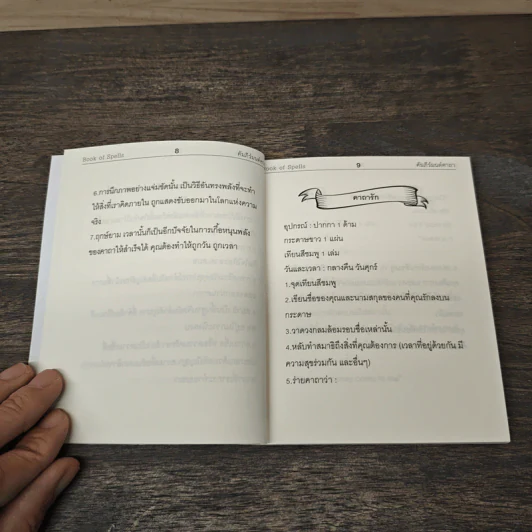 Book of Spells 8 คัมภีร์มนต์
6.การนึกภาพอย่างแจ่มชัดนั้น เป็นวิธีอันทรงพลังที่จะทำ
ให้สิ่งที่เราคิดภายใน ถูกแสดงขับออกมาในโลกแห่งความ
จริง
7.ฤกษ์ยาม เวลานั้นก็เป็นอีกปัจจัยในการเกื้อหนุนพลัง
ของคาถาให้สำเร็จได้ คุณต้องทำให้ถูกวัน ถูกเวลา
Book of Spells 9 คัมภีร์มนต์คาถา
คาถารัก
อุปกรณ์ : ปากกา 1 ด้าม
กระดาษขาว 1 แผ่น
เทียนสีชมพู 1 เล่ม
วันและเวลา : กลางคืน วันศุกร์
1.จุดเทียนสีชมพู
2.เขียนชื่อของคุณและนามสกุลของคนที่คุณรักลงบน
กระดาษ
3.วาดวงกลมล้อมรอบชื่อเหล่านั้น
4.หลับทำสมาธิถึงสิ่งที่คุณต้องการ (เวลาที่อยู่ด้วยกัน มี
ความสุขร่วมกัน และอื่นๆ)
5.ร่ายคาถาว่า :